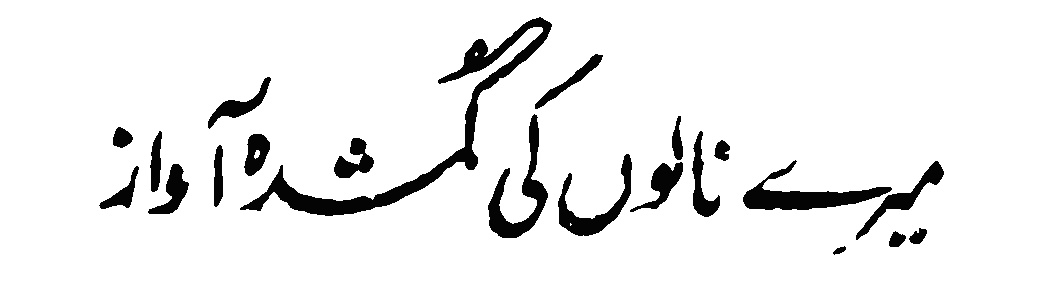 میرے نالوں کی گُمشدہ آواز